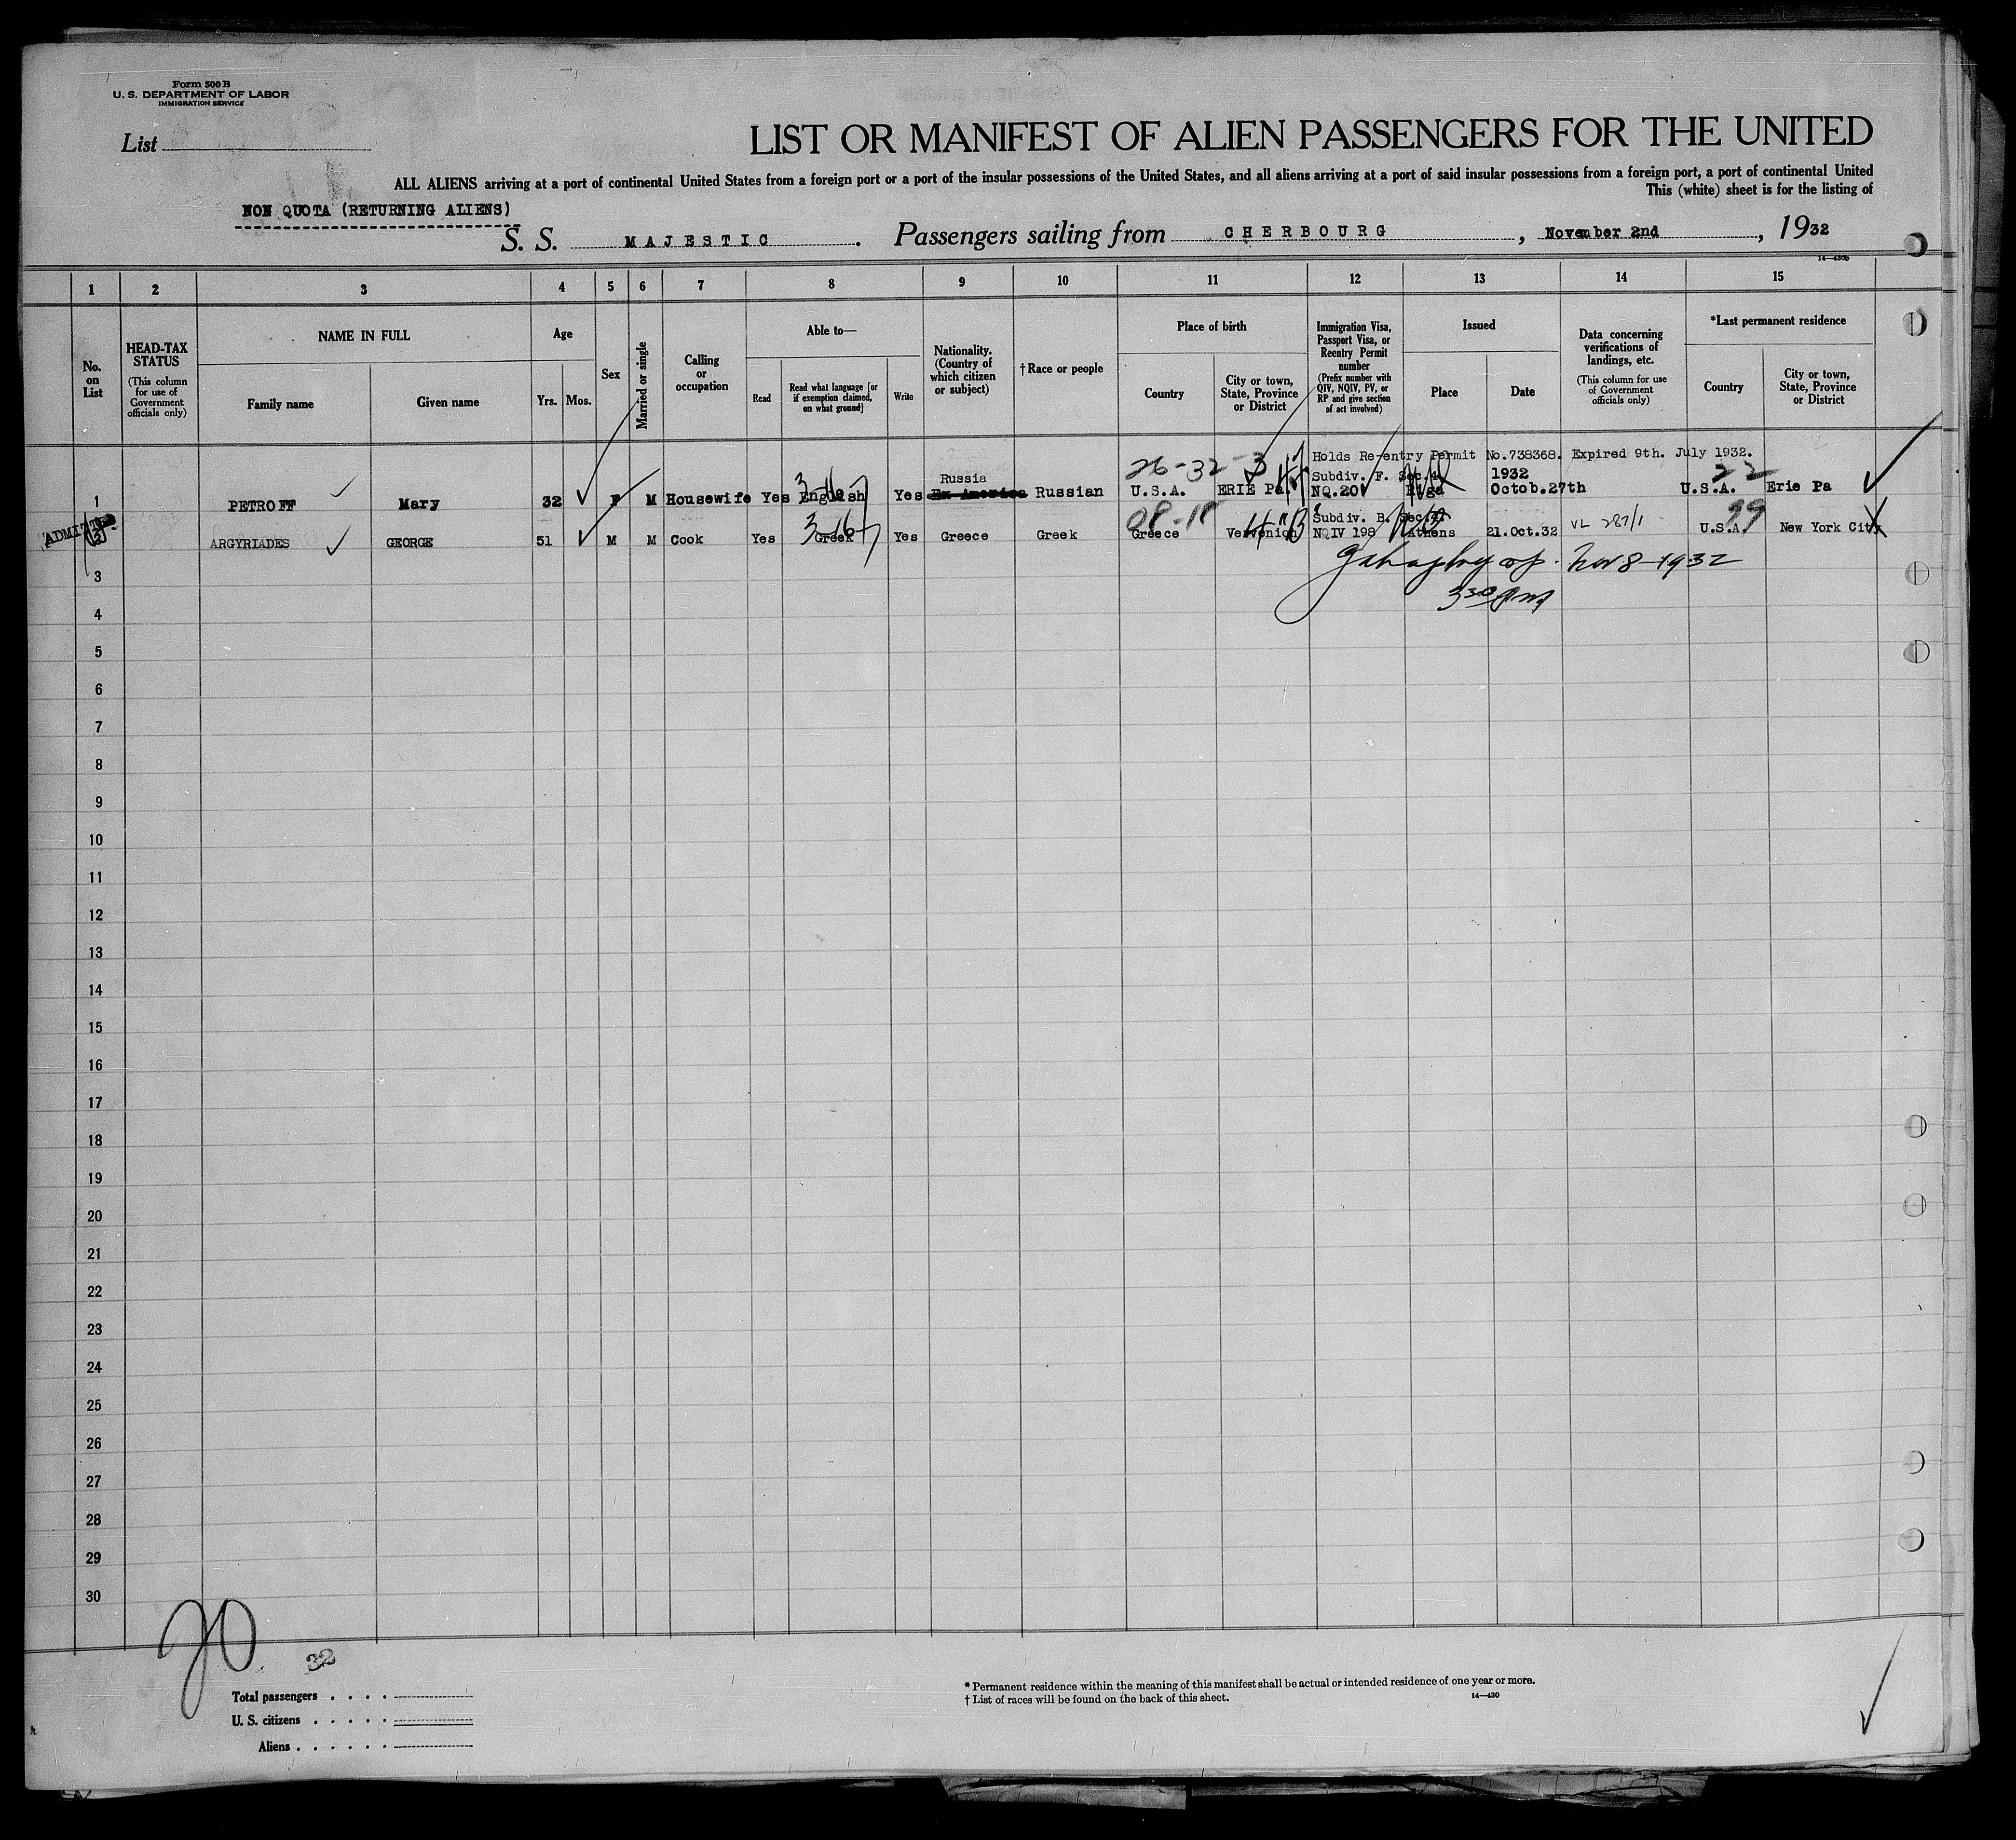 Form 500 B
U. S. DEPARTMENT OF LABOR
IMMIGRATION SERVICE
List
LIST OR MANIFEST OF ALIEN PASSENGERS FOR THE UNITED
ALL ALIENS arriving at a port of continental United States from a foreign port or a port of the insular possessions of the United States, and all aliens arriving at a port of said insular possessions from a foreign port, a port of continental United
This (white) sheet is for the listing of
NON QUOTA (RETURNING ALIENS)
S. S. MAJESTIC. Passengers sailing from CHERBOURG, November 2nd, 1932
14—430b
1 2 3 4 5 6 7 8 9 10 11 12 13 14 15
No. on List
HEAD-TAX STATUS (This column for use of Government officials only)
NAME IN FULL
Family name
Given name
Age
Yrs.
Mos.
Sex
Married or single
Calling or occupation
Able to—
Read
Read what language [or if exemption claimed, on what ground]
Write
Nationality. (Country of which citizen or subject)
†Race or people
Place of birth
Country
City or town, State, Province or District
Immigration Visa, Passport Visa, or Reentry Permit number (Prefix number with QIV, NQIV, PV, or RP and give section of act involved)
Issued
Place
Date
Data concerning verifications of landings, etc. (This column for use of Government officials only)
*Last permanent residence
Country
City or town, State, Province or District
Holds Re-entry Permit No.738368. Expired 9th. July 1932.
26-32-3
Russia
Subdiv. F. Sec.4
1932
22
1 PETROFF Mary 32 F M Housewife Yes English Yes Ex America Russian U.S.A. ERIE Pa. NQ.20 Riga Octob.27th U.S.A. Erie Pa
ADMITTED
Subdiv. B. Sec.4
99
ARGYRIADES GEORGE 51 M M Cook Yes Greek Yes Greece Greek Greece NQIV 198 Athens 21.Oct.32 VL 287/1 U.S.A. New York City
Nov 8-1932
3
4
5
6
7
8
9
10
11
12
13
14
15
16
17
18
19
20
21
22
23
24
25
26
27
28
29
30
20
32
Total passengers
U. S. citizens
Aliens
* Permanent residence within the meaning of this manifest shall be actual or intended residence of one year or more.
† List of races will be found on the back of this sheet.
14—430